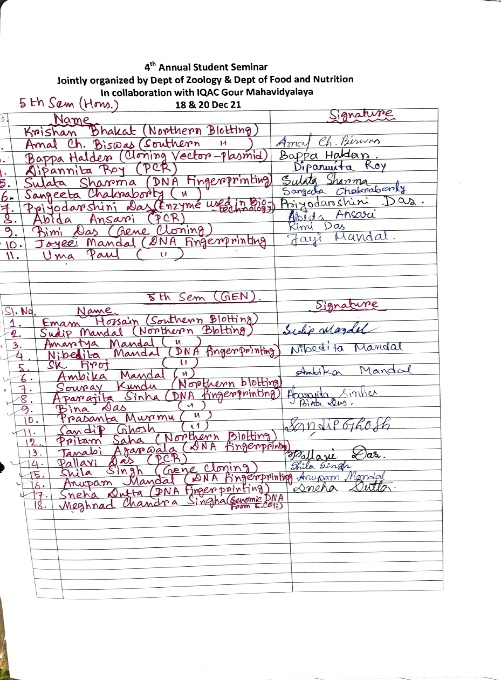 4th Annual Student Seminar
Jointly organized by Dept of Zoology & Dept of Food and Nutrition
In collaboration with IQAC Gour Mahavidyalaya
5th Sem (Hons.) 18 & 20 Dec 21
Name Signature
Krishan Bhakat (Northern Blotting)
Amal Ch. Biswas (Southern " ) Amal Ch. Biswas
Bappa Halder (Cloning Vector-plasmid) Bappa Halder.
Dipannita Roy (PCR) Dipannita Roy
5. Sulata Sharma (DNA Fingerprinting) Sulata Sharma
6. Sangeeta Chakraborty ( " ) Sangeeta Chakraborty
7. Priyodarshini Das (Enzyme used in Bio-technology) Priyodarshini Das.
8. Abida Ansari (PCR) Abida Ansari
9. Rimi Das (Gene Cloning) Rimi Das
10. Jayee Mandal (DNA Fingerprinting Jayi Mandal.
11. Uma Paul ( " )
5th Sem (GEN).
Sl. No. Name Signature
1. Emam Hossain (Southern Blotting)
2. Sudip Mandal (Northern Blotting) Sudip Mandal
3. Mandal ( " )
4. Nibedita Mandal (DNA fingerprinting) Nibedita Mandal
5. SK. Firoj ( " )
6. Ambika Mandal ( " ) Ambika Mandal
7. Sourav Kundu (Northern blotting)
8. Aparajita Sinha (DNA fingerprinting) Aparajita Sinha
9. Bina Das ( " ) Bina Das.
10. Prasanta Murmu ( " )
11. Sandip Ghosh ( " ) Sandip Ghosh
12. Pritam Saha (Northern Blotting)
13. Agarwala (DNA fingerprinting)
14. Pallavi Das (PCR) Pallavi Das.
15. Shila Singh (Gene cloning) Shila Singh
16. Anupam Mandal (DNA Fingerprinting Anupam Mandal
17. Sneha Dutta (DNA Fingerprinting) Sneha Dutta
18. Meghnad Chandra Singha (Genomic DNA From E.Coli)